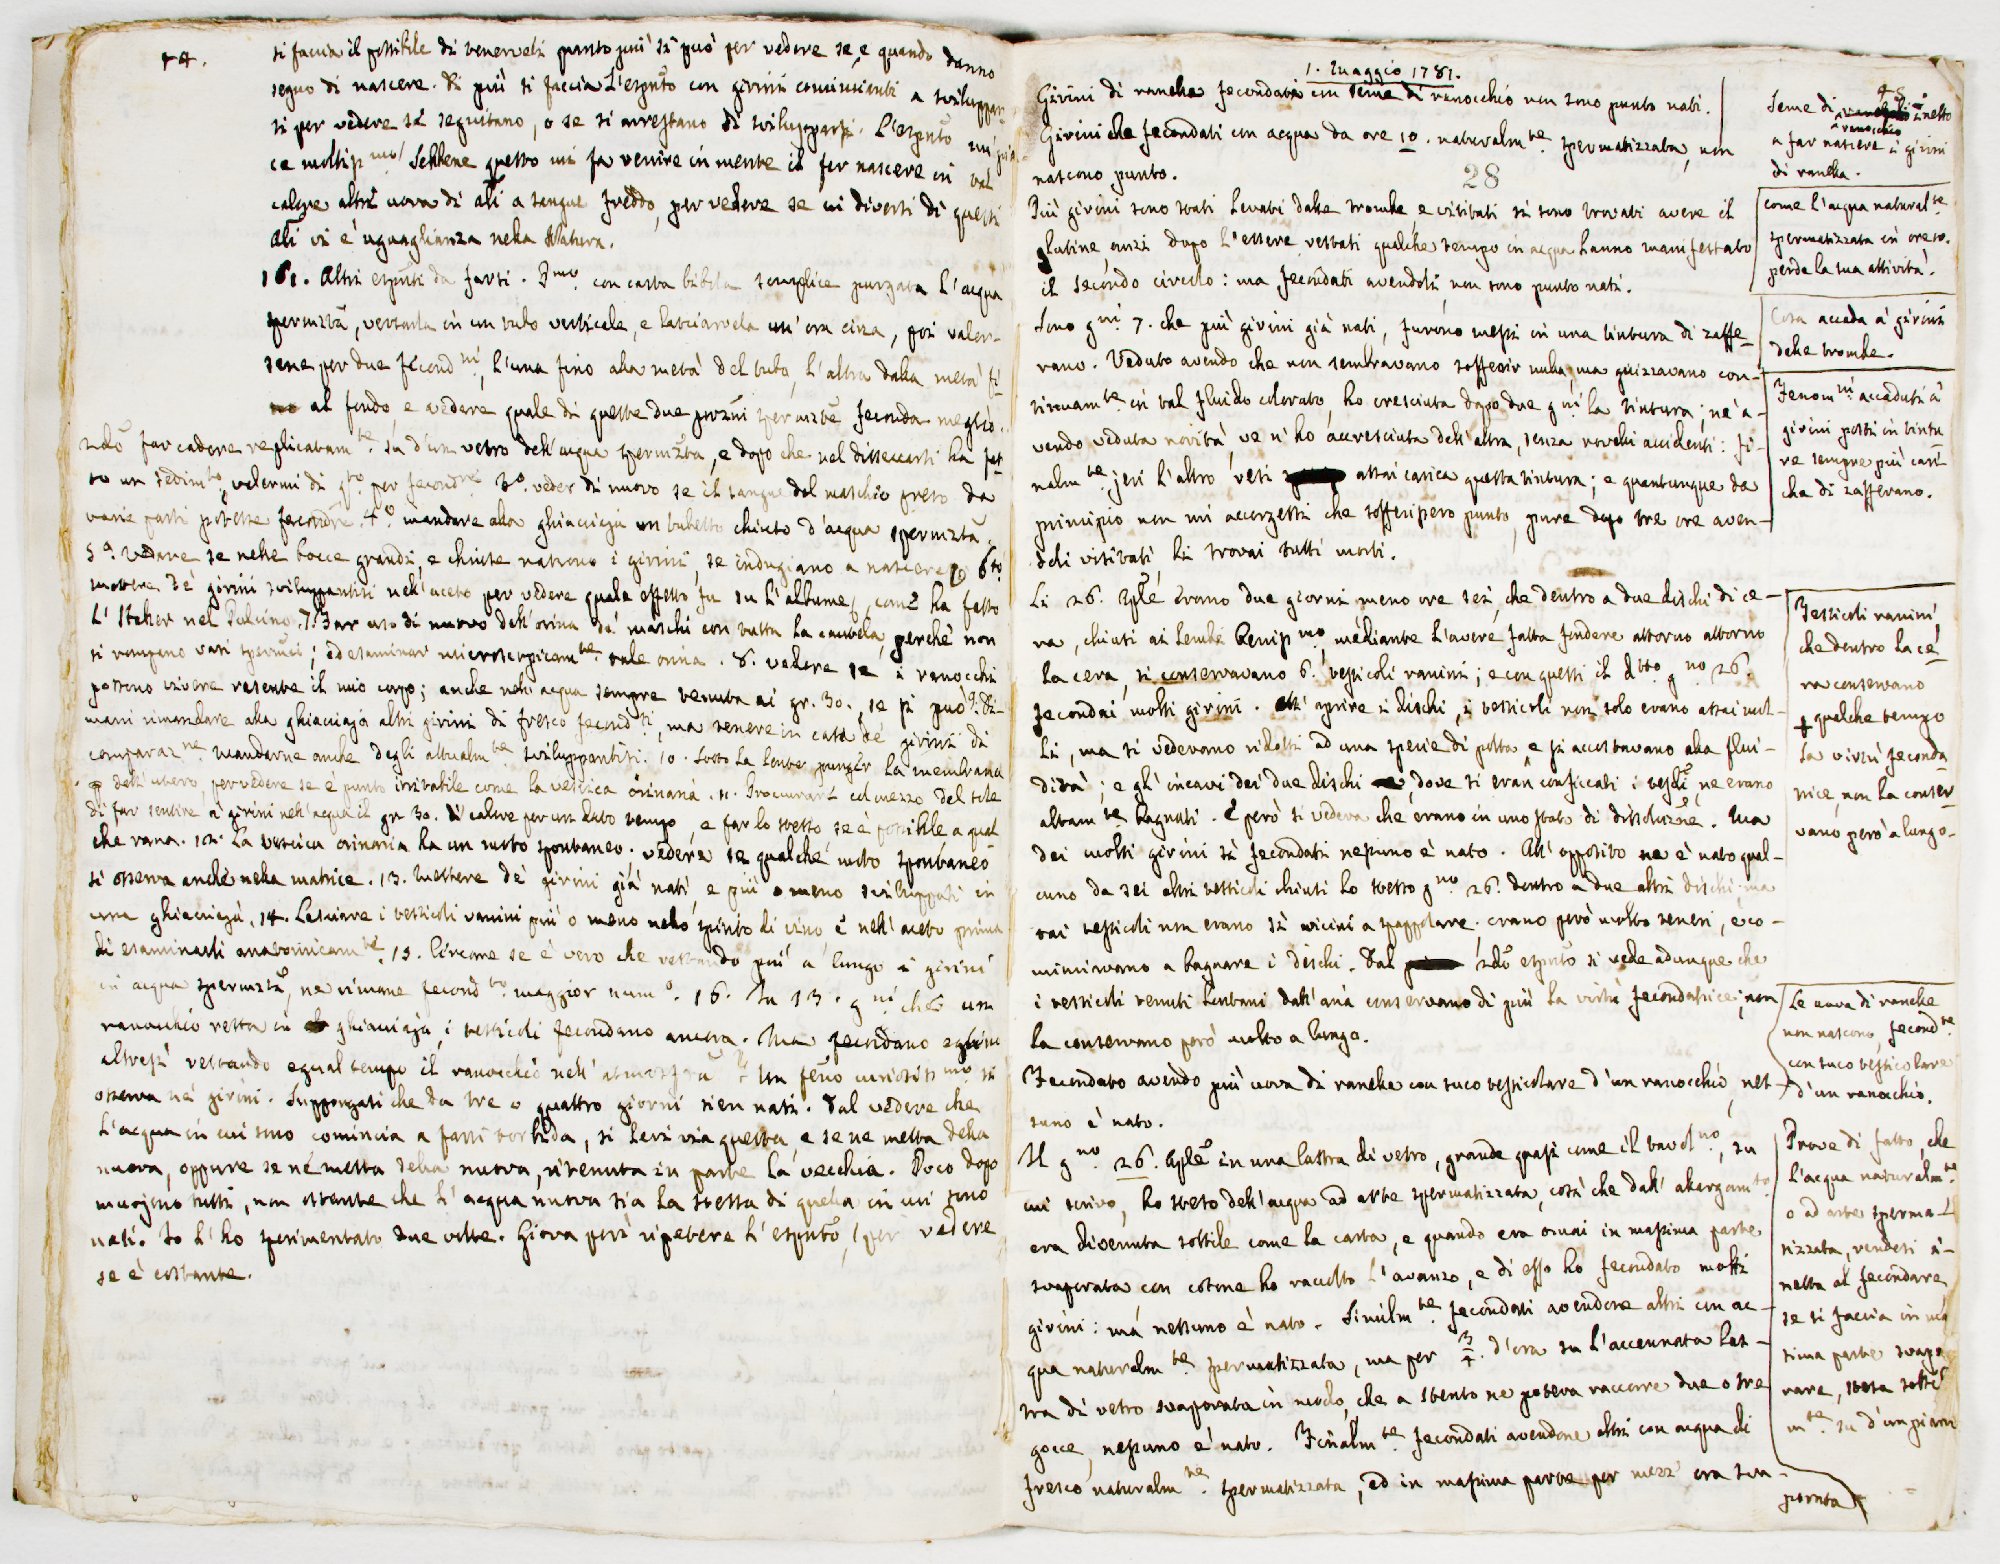 si faccia il possibile di tenerveli punto più si può per vedere se, e quando danno
segno di nascere. Di più si faccia l'espᵗᵒ con girini comincianti a sviluppar
si per vedere se seguitano, o se si arrestano di svilupparsi. L'espᵗᵒ mi pia
ce moltipᵐᵒ/ Sebbene questo mi fa venire in mente il far nascere in tal
calore altre uova di ali a sangue freddo, per vedere se in diversi di questi
ali vi è uguaglianza nella Natura.
161. Altri espᵗⁱ da farsi. Pᵐᵒ. con carta bibula semplice purgata l'acqua
spermᶻᵗᵃ, versarla in un tubo verticale, e lasciarvela un'ora circa, poi valer-
sene per due fecondⁿⁱ, l'una fino alla metà del tubo, l'altra dalla metà fi
no al fondo, e vedere quale di queste due porzⁿⁱ spermᶻᵗᵉ feconda meglio.
2ᵈᵒ far cadere replicatamᵗᵉ su d'un vetro dell'acqua spermᶻᵗᵃ, e dopo che nel disseccarsi ha fat
to un sedimᵗᵒ, valermi di qᵗᵒ per fecondʳᵉ. 3ᵒ. veder di nuovo se il sangue del maschio preso da
varie parti potesse fecondʳᵉ. 4ᵒ mandare alla ghiacciaja un tubetto chiuso d'acqua spermᶻᵗᵃ.
5ᵒ. Vedere se nelle bocce grandi, e chiuse nascono i girini, se indugiano a nascere. 6ᵗᵒ
mettere de' girini sviluppantisi nell'aceto per vedere quale effetto fa su l'albume, come ha fatto
L'Haller nel Pulcino. 7. Far uso di nuovo dell'orina de' maschi con tutta la cautela, perchè non
si rompano vasi spermᶜⁱ; ed esaminar microscopicamᵗᵉ tale orina. 8. vedere se i ranocchi
possono vivere rasente il mio corpo; anche nell'acqua sempre tenuta ai gr. 30., se si può. 9. Di-
mani rimandare alla ghiacciaja altri girini di fresco fecondᵗⁱ, ma tenere in casa de' girini di
comparazⁿᵉ. Mandarne anche degli attualmᵗᵉ sviluppantisi. 10. Sotto la lente pungʳᵉ la membrana
dell'utero, per vedere se è punto irritabile come la vescica orinaria. 11. Procurarsi col mezzo del sole
di far sentire a' girini nell'acqua il gr. 30. di calore per un dato tempo, e far lo stesso se è possibile a qual
che rana. 12. La vescica orinaria ha un moto spontaneo. vedere se qualche moto spontaneo
si osserva anche nella matrice. 13. Mettere de' girini già nati, e più o meno sviluppati in
una ghiacciaja. 14. Lasciare i testicoli ranini più o meno nello spirito di vino, e nell'aceto prima
di esaminarli anatomicamᵗᵉ. 15. Cercare se è vero che restando più a lungo i girini
in acqua spermᶻᵗᵃ, ne rimane fecondᵗᵒ maggior numᵒ. 16. In 13. gⁿⁱ che un
ranocchio resta in ghiacciaja, i testicoli fecondano ancora. Ma fecondano eglino
altresì restando egual tempo il ranocchio nell'atmosfera? Un fenᵒ curiosissᵐᵒ si
osserva ne' girini. Suppongasi che da tre o quattro giorni sien nati. Dal vedere che
l'acqua in cui sono comincia a farsi torbida, si levi via questa, e se ne metta della
nuova, oppure se ne metta della nuova, ritenuta in parte la vecchia. Poco dopo
muojono tutti, non ostante che l'acqua nuova sia la stessa di quella in cui sono
nati. Io l'ho sperimentato due volte. Giova però ripetere l'espᵗᵒ, per vedere
se è costante.
1. Maggio 1781.
28
Girini di ranelle fecondati con seme di ranocchio non sono punto nati.
Girini che fecondati con acqua da ore 10. naturalmᵗᵉ. spermatizzata, non
nascono punto.
Più girini sono stati levati dalle trombe e visitati si sono trovati avere il
glutine, anzi dopo l'essere restati qualche tempo in acqua hanno manifestato
il secondo circolo: ma fecondati avendoli, non sono punto nati.
Sono gⁿⁱ 7. che più girini già nati, furono messi in una tintura di zaffe-
rano. Veduto avendo che non sembravano sofferir nulla, ma guizzavano con-
tinuamᵗᵉ in tal fluido colorato, ho cresciuta dopo due gⁿⁱ la tintura; ne' a-
vendo veduta novità, ve n'ho accresciuta dell'altra, senza novelli accidenti: fi-
nalmᵗᵉ jeri l'altro resi assai carica questa tintura; e quantunque da
principio non mi accorgessi che soffrissero punto, pure dopo tre ore aven-
doli visitati li trovai tutti morti.
Li 26. Aplᵉ, erano due giorni meno ore sei, che dentro a due dischi di ce-
ra, chiusi ai lembi benissᵐᵒ, mediante l'avere fatta fondere attorno attorno
la cera, si conservavano 6. testicoli ranini; e con questi il dᵗᵗᵒ gⁿᵒ 26.
fecondai molti girini. All'aprire i dischi, i testicoli non solo erano assai mol-
li, ma si vedevano ridotti ad una specie di polta, e si accostavano alla flui-
dità; e gl'incavi dei due dischi, dove si eran conficcati i testⁱ, ne erano
altamᵗᵉ bagnati. E però si vedeva che erano in uno stato di dissoluzⁿᵉ. Ma
dei molti girini sì fecondati nessuno è nato. All'opposito ne è nato qual-
cuno da sei altri testicoli chiusi lo stesso gⁿᵒ 26. dentro a due altri dischi; ma
tai testicoli non erano sì vicini a spappolare. erano però molto teneri, e co-
minciavano a bagnare i dischi. Dal 2ᵈᵒ espᵗᵒ si vede adunque che
i testicoli tenuti lontani dall'aria conservano di più la virtù fecondatrice; non
la conservano però molto a lungo.
Fecondato avendo più uova di ranelle con suco testicolare d'un ranocchio, nes-
suno è nato.
Il gⁿᵒ. 26. Aplᵉ in una lastra di vetro, grande quasi come il tavolⁿᵒ, su
cui scrivo, ho steso dell'acqua ad arte spermatizzata, così che dall'allargamᵗᵒ
era divenuta sottile come la carta, e quando era omai in massima parte
svaporata con cotone ho raccolto l'avanzo, e di esso ho fecondato molti
girini: ma nessuno è nato. Similmᵗᵉ. fecondati avendone altri con ac-
qua naturalmᵗᵉ spermatizzata, ma per 3/4. d'ora su l'accennata las-
tra di vetro svaporata in modo, che a stento ne poteva raccorre due o tre
gocce, nessuno è nato. Finalmᵗᵉ. fecondati avendone altri con acqua di
fresco naturalmᵗᵉ. spermatizzata, ed in massima parte per mezz'ora sva-
porata
Seme di ranocchio inetto
a far nascere i girini
di ranella.
Come l'acqua naturalᵗᵉ
spermatizzata in ore 10.
perde la sua attività.
Cosa accada a' girini
delle trombe.
Fenomⁿⁱ accaduti a'
girini posti in tintu
re sempre più cari-
che di zafferano.
Testicoli ranini,
che dentro la ce-
ra conservano
qualche tempo
la virtù feconda
trice, non la conser
vano però a lungo.
Le uova di ranelle
non nascono, fecondᵗᵉ
con suco testicolare
d'un ranocchio.
Prove di fatto, che
l'acqua naturalmᵗᵉ
o ad arte sperma-
tizzata, rendesi i-
netta al fecondare
se si faccia in mas
sima parte svapo
rare, stesa sottil
mᵗᵉ su d'un piano